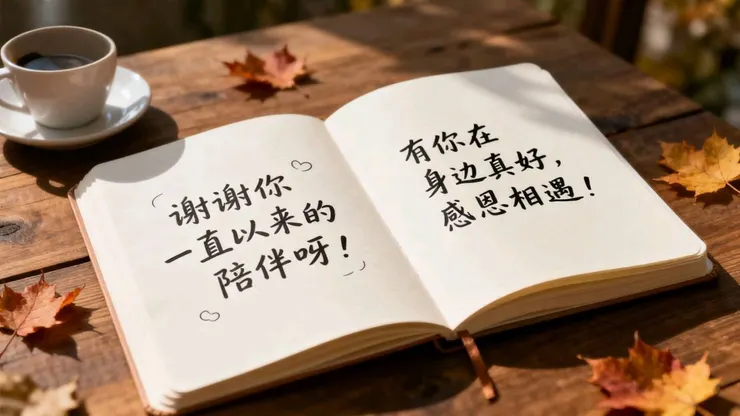 谢谢你
一直以来的
陪伴呀！
有你在
身边真好，
感恩相遇！